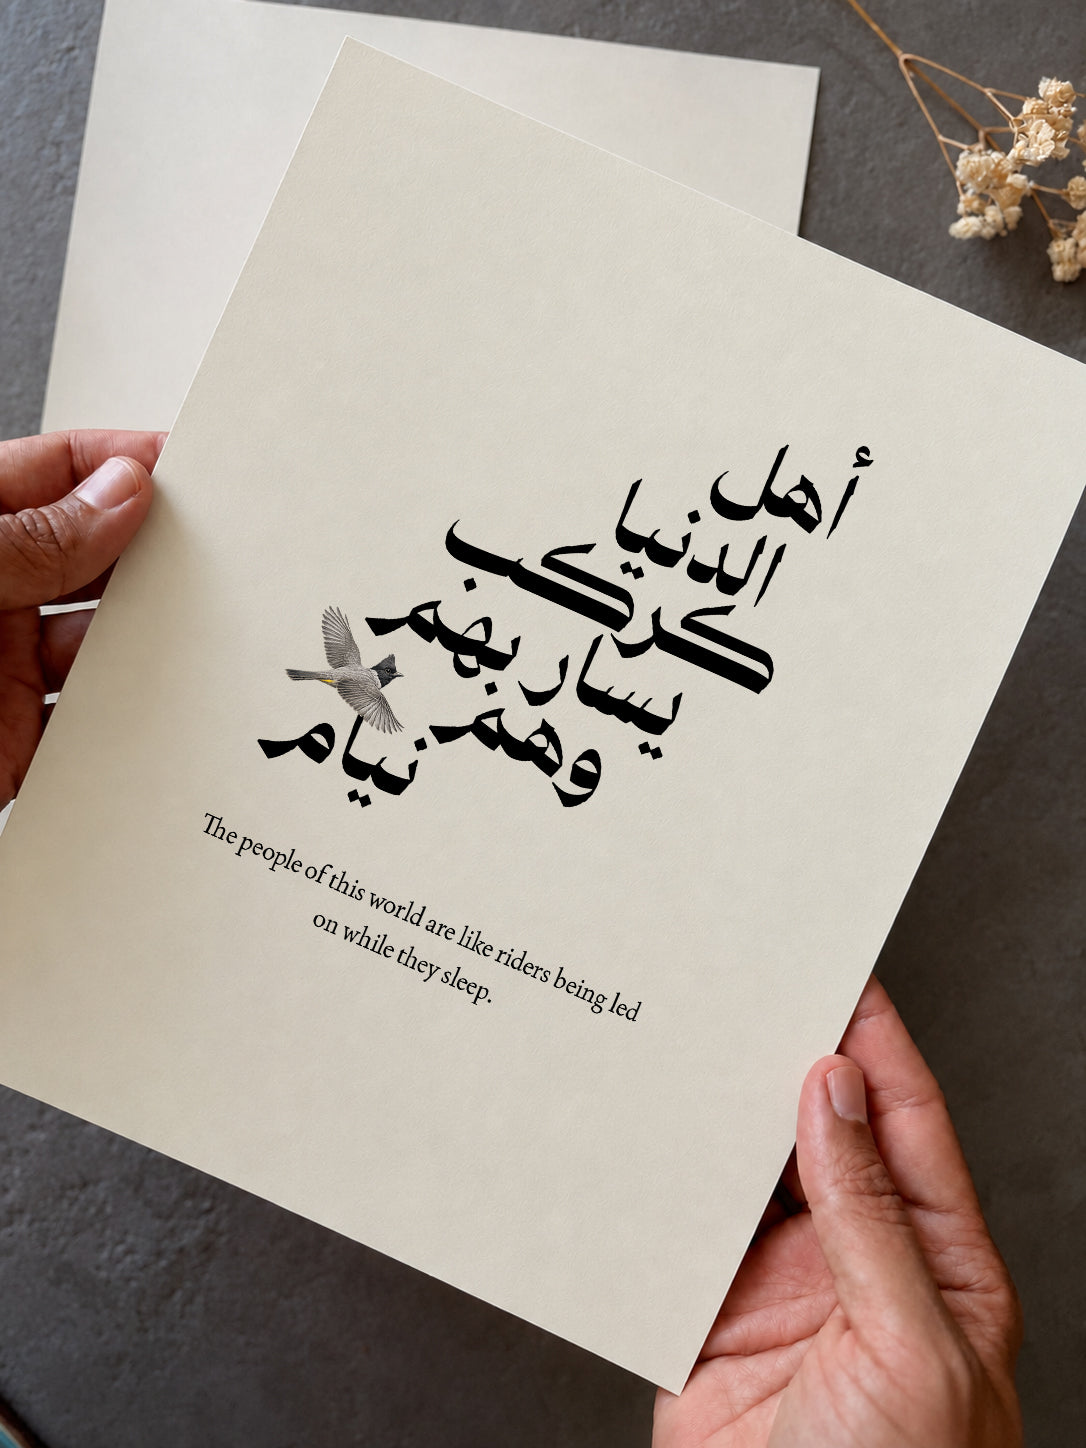 أهل
الدنيا
كركب
يسار بهم
وهم
نيام
The people of this world are like riders being led
on while they sleep.